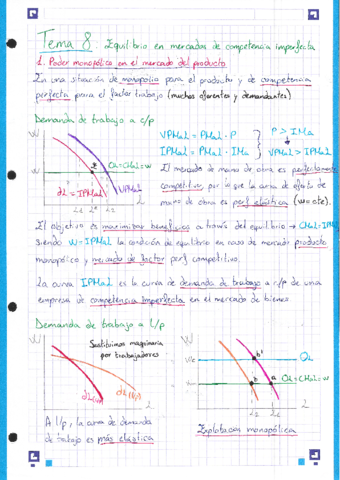 Tema 8. Equilibrio en mercados de competencia imperfecta
1. Poder monopólico en el mercado del producto
En una situación de monopolio para el producto y de competencia
perfecta para el factor trabajo (muchos oferentes y demandantes)
Demanda de trabajo a c/p
W
VPMaL = PMaL · P
IPMaL = PMaL · IMa
P > IMa
VPMaL > IPMaL
OL=CMaL=w
dL = IPMaL
VPMaL
L
El mercado de mano de obra es perfectamente
competitivo, por lo que la curva de oferta de
mano de obra es perf elástica (w=cte).
El objetivo es maximizar beneficios a través del equilibrio → CMaL=IPMaL
siendo W=IPMaL la condición de equilibrio en caso de mercado producto
monopólico y mercado de factor perf competitivo.
La curva IPMaL es la curva de demanda de trabajo a c/p de una
empresa de competencia imperfecta en el mercado de bienes.
Demanda de trabajo a l/p
W
Sustituimos maquinaria
por trabajadores
dL (c/p)
dL (l/p)
L
A l/p, la curva de demanda
de trabajo es más elástica
W
b'
OL
b
a
OL=CMaL=w
L
Explotación monopólica